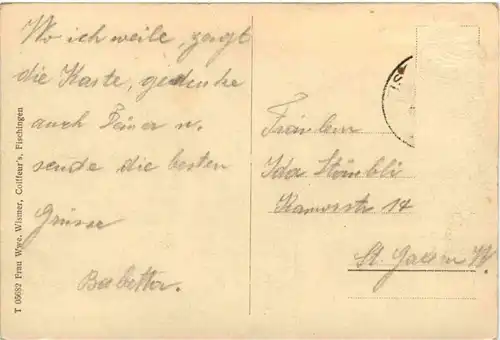 Wo ich weile, zeigt
die Karte, gedenke
auch Deiner u.
sende die besten
Grüsse
Babetta.
Fräulein
Ida Stäubli
Kamorstr 14
St. Gallen W.
T 05682 Frau Wwe. Wismer, Coiffeur's, Fischingen